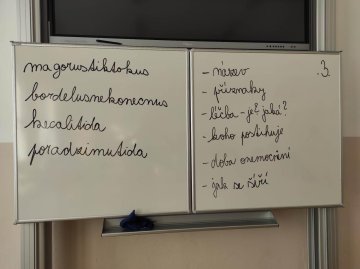 magorustiktokus
bordelusnekonecnus
kecalitida
poradzimutida
- název
3.
- příznaky
- léčba - je? jaká?
- koho postihuje
- doba onemocnění
- jak se šíří